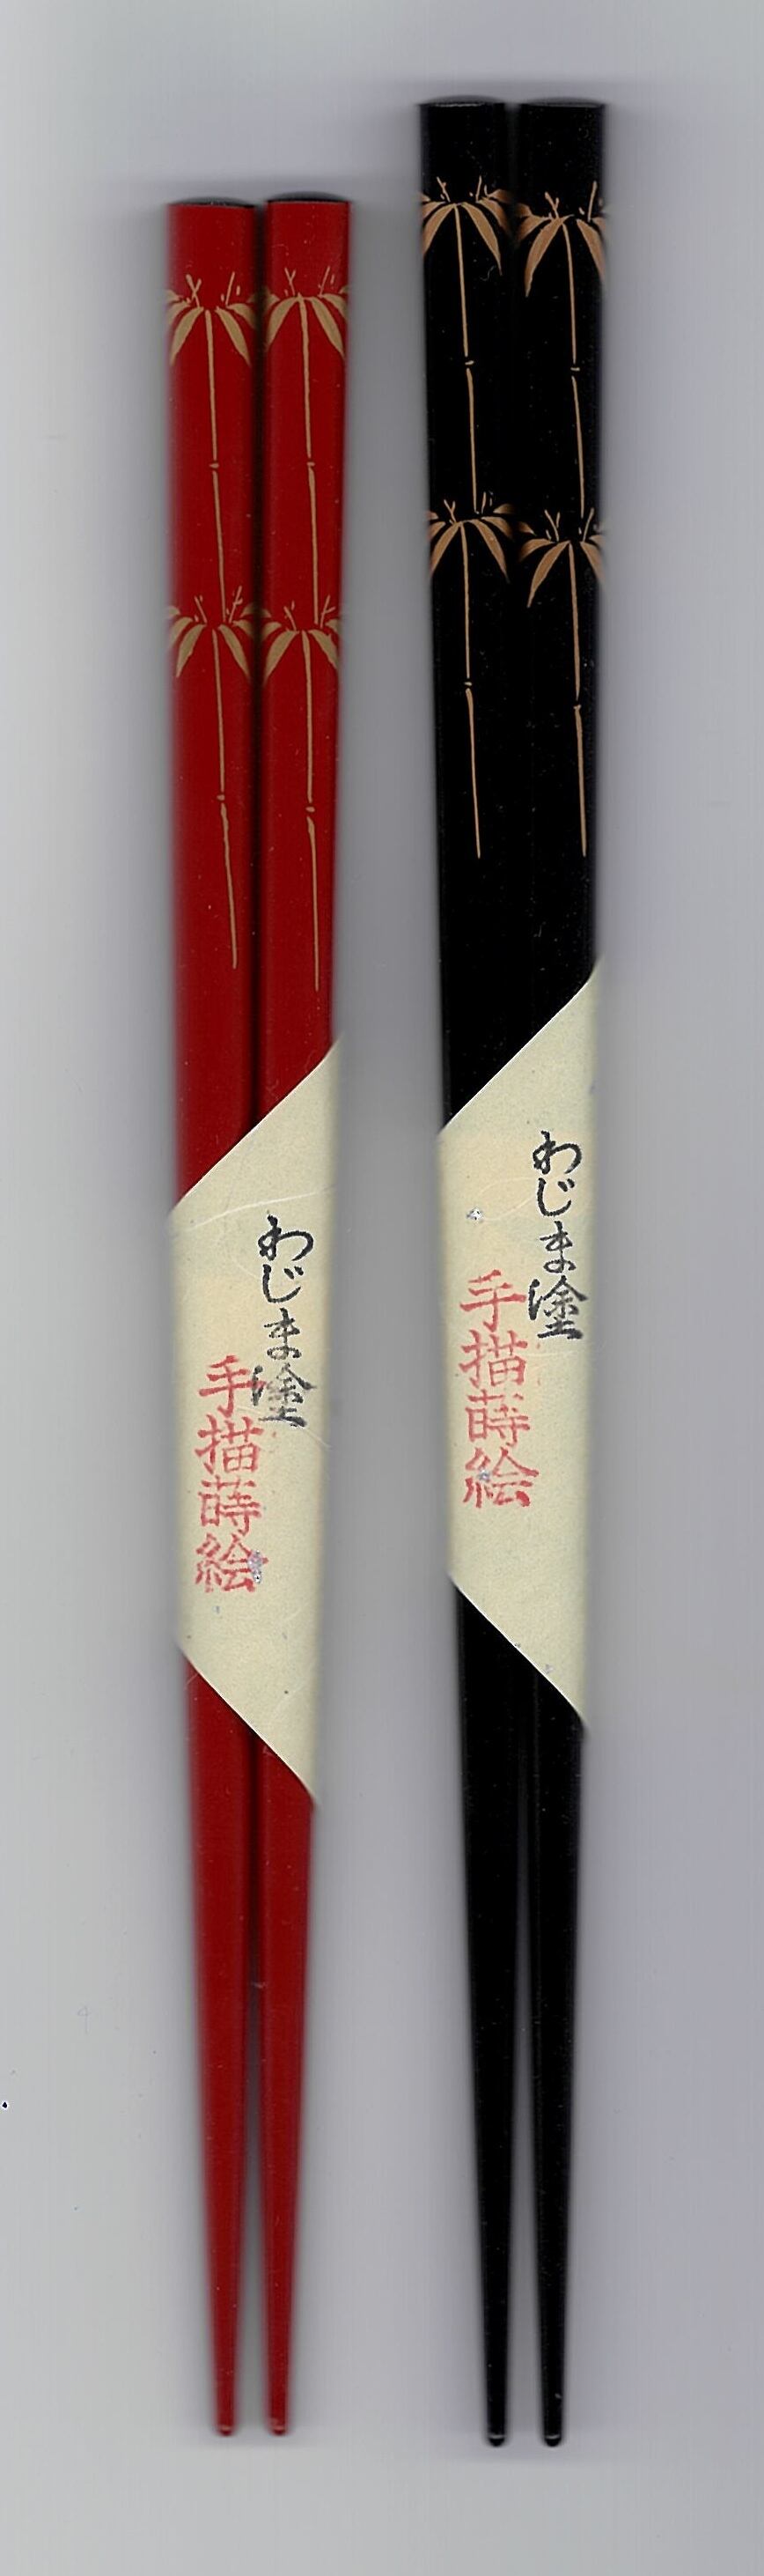 わじま塗
手描蒔絵
わじま塗
手描蒔絵